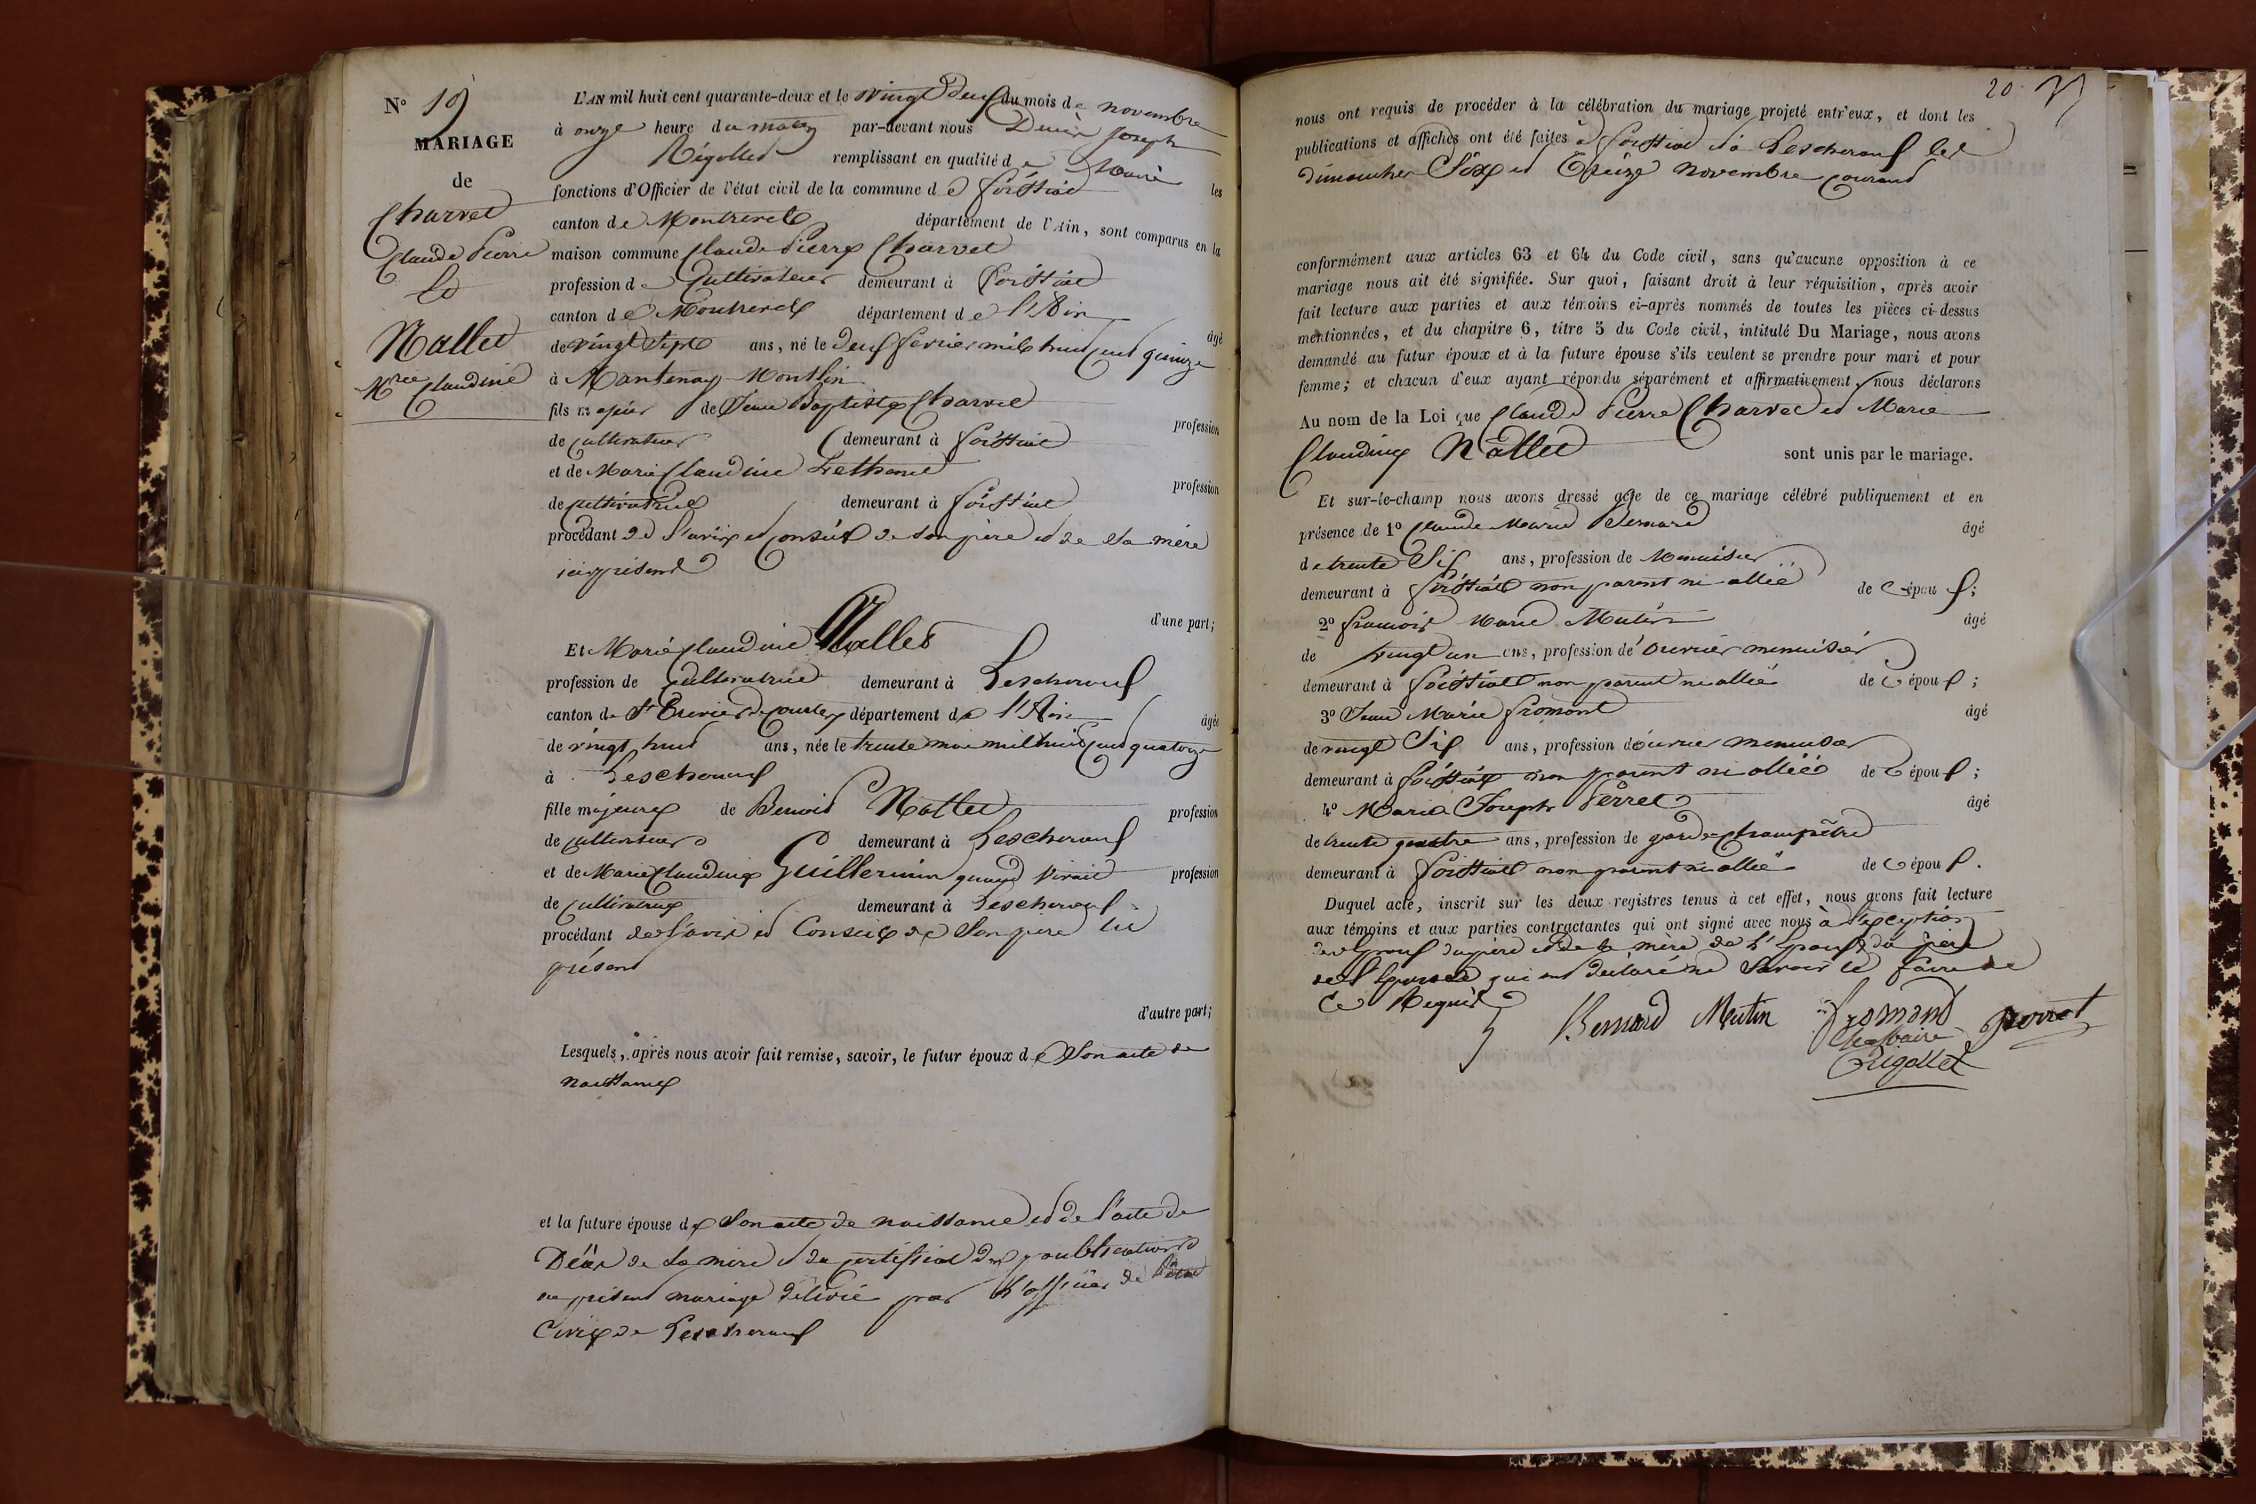 N° 19
MARIAGE
de
Charvet
Claude Pierre
Et
Nallet
Mrie Claudine
L'AN mil huit cent quarante-deux et le vingt deux du mois de novembre
à onze heure du matin par-devant nous Denis Joseph
Rigollet remplissant en qualité de Maire les
fonctions d'Officier de l'état civil de la commune de foissiat
canton de Montrevel département de l'Ain, sont comparus en la
maison commune Claude Pierre Charvet
profession de Cultivateur demeurant à foissiat
canton de Montrevel département de l'Ain âgé
de vingt sept ans, né le deux février mil huit cent quinze
à Mantenay Montlin
fils majeur de Jean Baptiste Charvet profession
de cultivateur demeurant à foissiat
et de Marie Claudine profession
de cultivatrice demeurant à foissiat
procédant de l'avis et conseil de son père et de sa mère
ici présent
d'une part;
Et Marie Claudine Nallet
profession de Cultivatrice demeurant à Lescheroux
canton de St Trivier de courtes département de l'Ain âgée
de vingt huit ans, née le trente mai mil huit cent quatorze
à Lescheroux
fille majeure de Benoit Nallet profession
de cultivateur demeurant à Lescheroux
et de Marie Claudine Guillermin quand vivait profession
de cultivatrice demeurant à Lescheroux
procédant de l'avis et Conseil de Son père ici
présent
d'autre part;
Lesquels, après nous avoir fait remise, savoir, le futur époux de Son acte de
naissance
et la future épouse de Son acte de naissance et de l'acte de
Décès de sa mère et du certificat des publications
du présent mariage délivré par l'officier de l'état
Civil de Lescheroux
20
nous ont requis de procéder à la célébration du mariage projeté entr'eux, et dont les
publications et affiches ont été faites à foissiat et à Lescheroux les
dimanches Six et Treize novembre courant
conformément aux articles 63 et 64 du Code civil, sans qu'aucune opposition à ce
mariage nous ait été signifiée. Sur quoi, faisant droit à leur réquisition, après avoir
fait lecture aux parties et aux témoins ci-après nommés de toutes les pièces ci-dessus
mentionnées, et du chapitre 6, titre 5 du Code civil, intitulé Du Mariage, nous avons
demandé au futur époux et à la future épouse s'ils veulent se prendre pour mari et pour
femme; et chacun d'eux ayant répondu séparément et affirmativement, nous déclarons
Au nom de la Loi que Claude Pierre Charvet et Marie
Claudine Nallet sont unis par le mariage.
Et sur-le-champ nous avons dressé acte de ce mariage célébré publiquement et en
présence de 1° Claude Marie Bernard âgé
de trente Six ans, profession de Menuisier
demeurant à foissiat non parent ni allié de l'époux;
2° françois Marie Mutin âgé
de vingt un ans, profession d'ouvrier menuisier
demeurant à foissiat non parent ni allié de l'époux;
3° Jean Marie fromont âgé
de vingt Six ans, profession d'ouvrier menuisier
demeurant à foissiat non parent ni allié de l'époux;
4° Marie Joseph Perret âgé
de trente quatre ans, profession de garde Champêtre
demeurant à foissiat non parent ni allié de l'époux.
Duquel acte, inscrit sur les deux registres tenus à cet effet, nous avons fait lecture
aux témoins et aux parties contractantes qui ont signé avec nous à l'exception
des Epoux du père et de la mère de l'Epoux du père
de l'Epouse qui ont déclaré ne Savoir le faire de
Ce Requis
Bernard Mutin fromond perret
le Maire
Rigollet